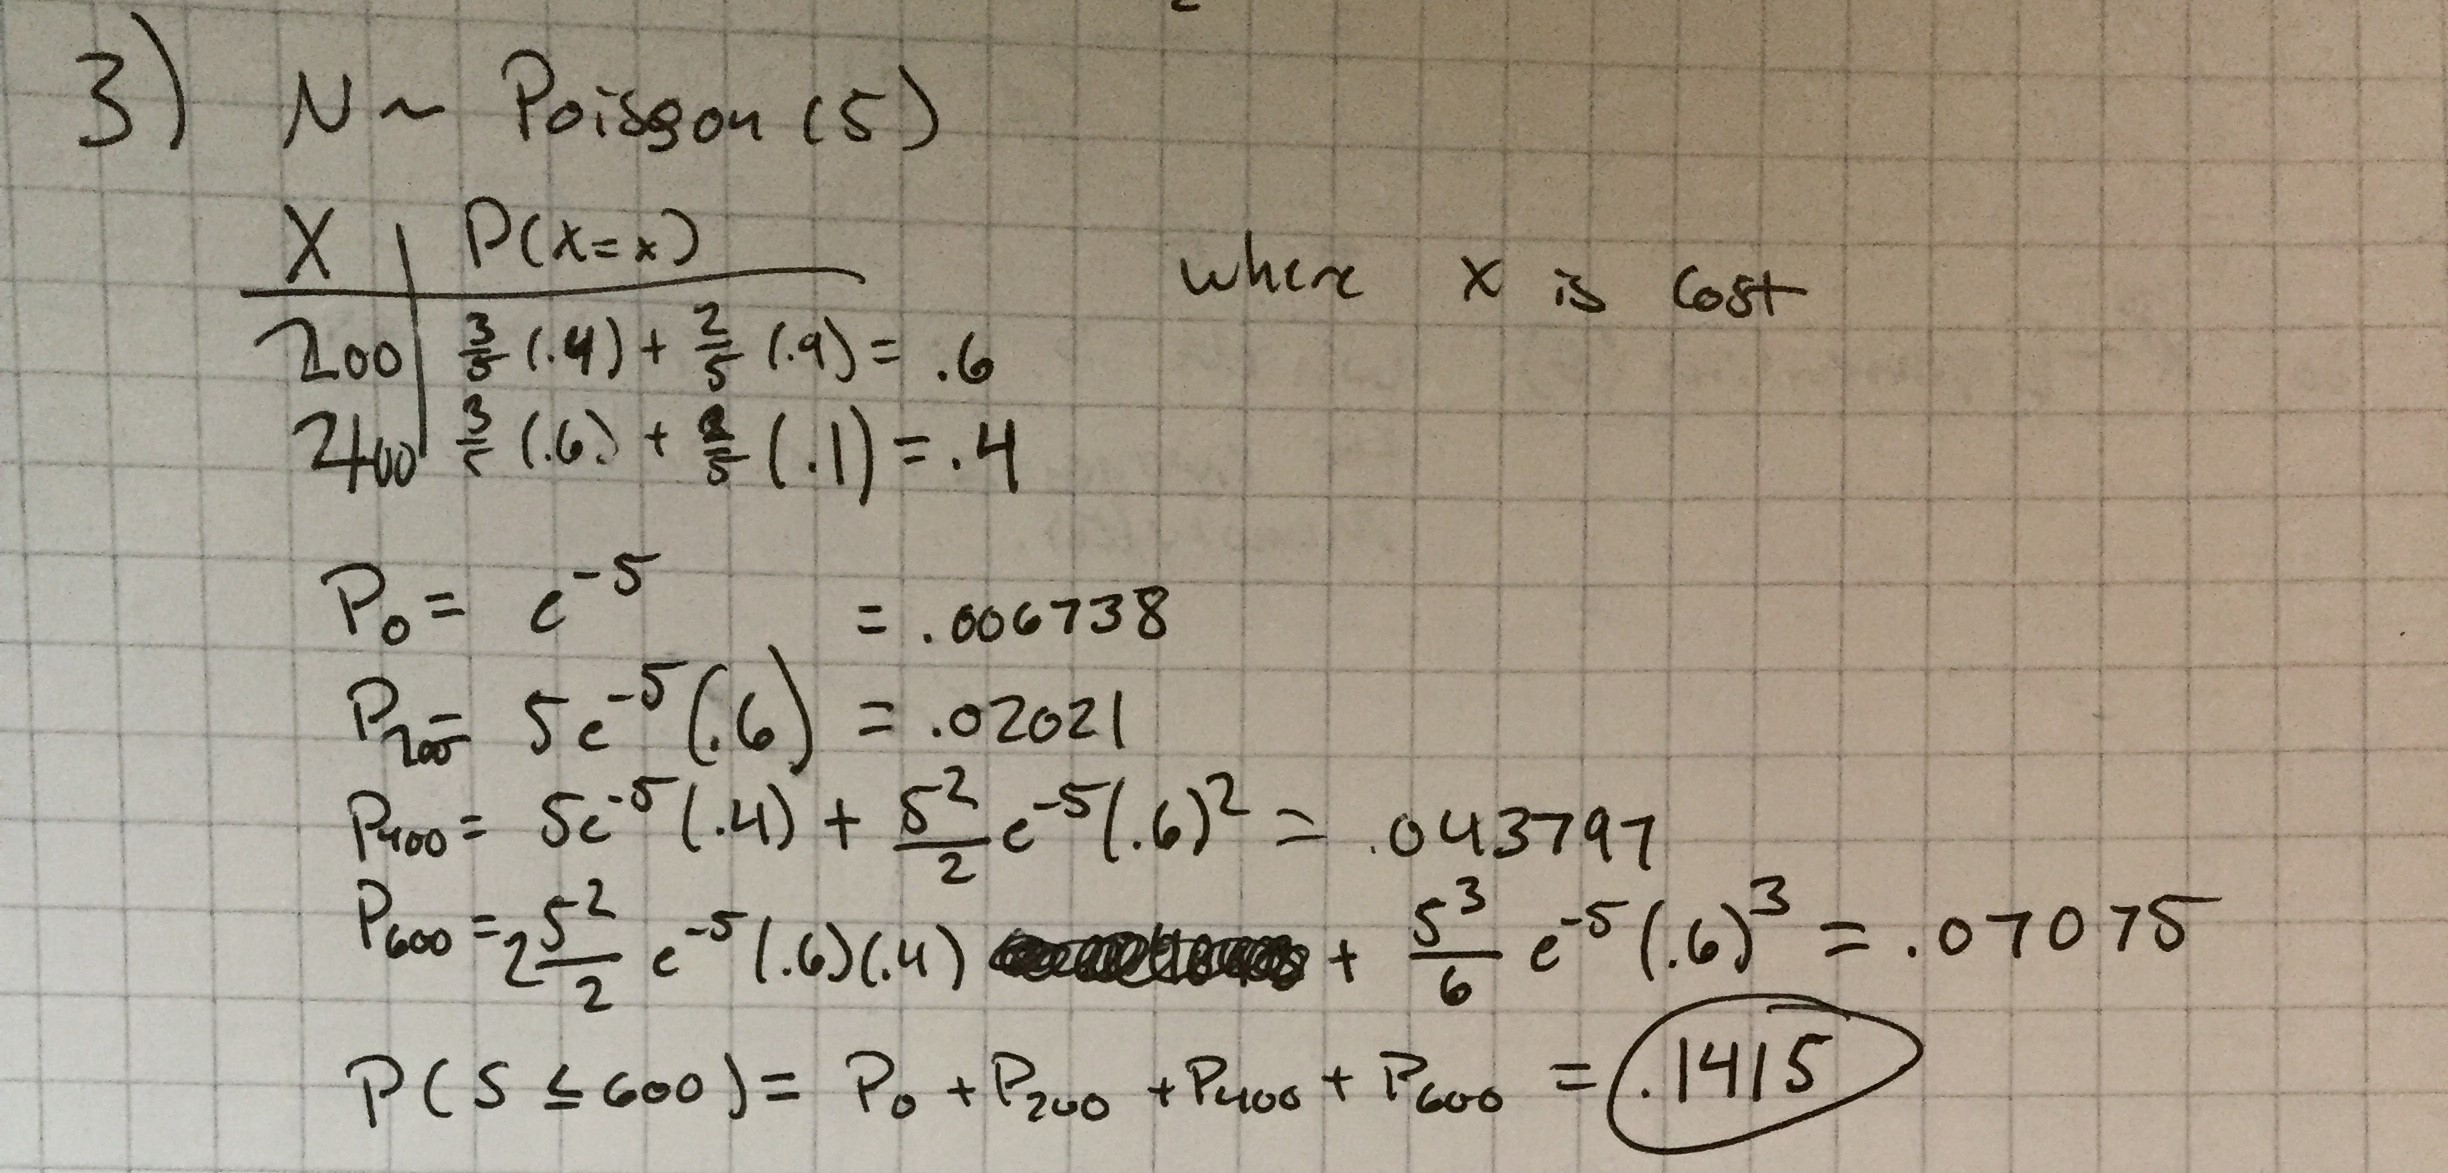 3) N ~ Poisson (5)
X | P(X=x)
where X is Cost
200 | 3/5 (.4) + 2/5 (.9) = .6
400 | 3/5 (.6) + 2/5 (.1) = .4
P₀ = e⁻⁵ = .006738
P₂₀₀ = 5e⁻⁵(.6) = .02021
P₄₀₀ = 5e⁻⁵(.4) + 5²/2 e⁻⁵(.6)² = .043797
P₆₀₀ = 2 5²/2 e⁻⁵(.6)(.4) + 5³/6 e⁻⁵(.6)³ = .07075
P(S ≤ 600) = P₀ + P₂₀₀ + P₄₀₀ + P₆₀₀ = .1415